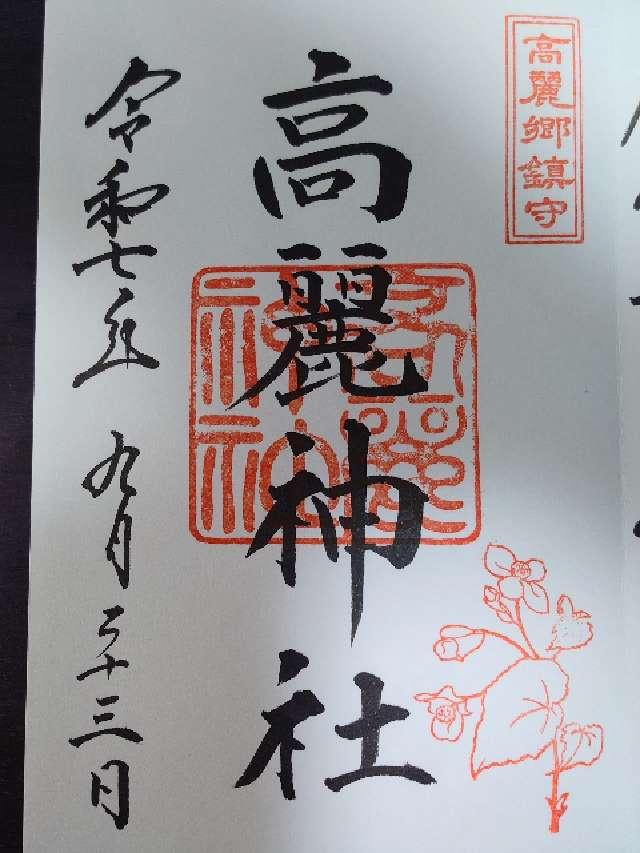 高麗郷鎮守
高麗神社
令和七年九月二十三日